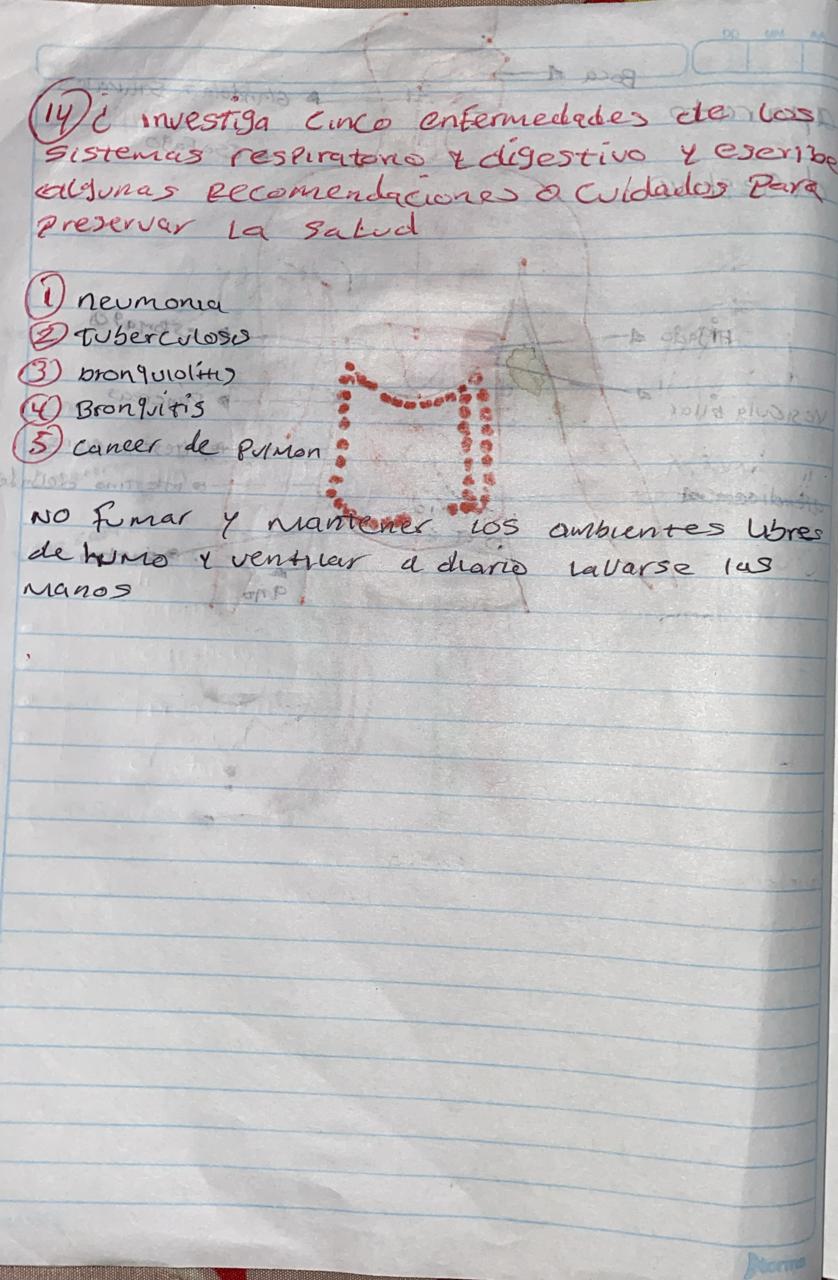 14 ¿ investiga cinco enfermedades de los
sistemas respiratorio y digestivo y escribe
algunas Recomendaciones o cuidados Para
Preservar La Salud
1 neumonia
2 tuberculosis
3 bronquiolitis
4 Bronquitis
5 cancer de Pulmon
NO fumar y mantener los ambientes libres
de humo y ventilar a diario lavarse las
manos
Norma